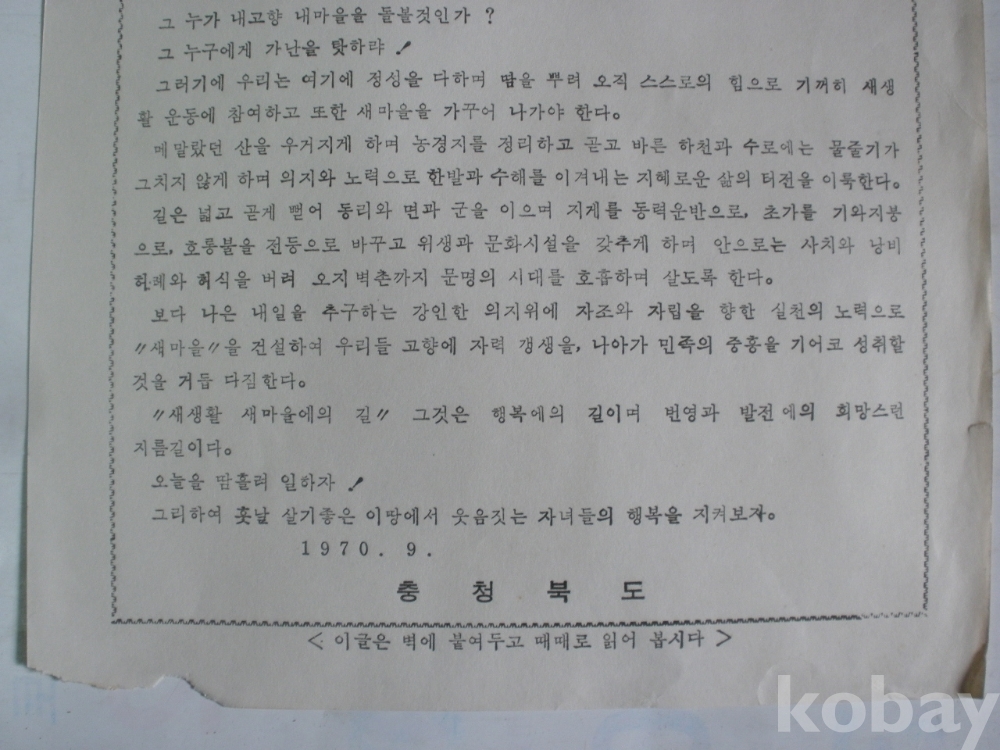 그 누가 내고향 내마을을 돌볼것인가 ?
그 누구에게 가난을 탓하랴 !
그러기에 우리는 여기에 정성을 다하며 땀을 뿌려 오직 스스로의 힘으로 기꺼히 새생
활 운동에 참여하고 또한 새마을을 가꾸어 나가야 한다。
메말랐던 산을 우거지게 하며 농경지를 정리하고 곧고 바른 하천과 수로에는 물줄기가
그치지 않게 하며 의지와 노력으로 한발과 수해를 이겨내는 지혜로운 삶의 터전을 이룩한다。
길은 넓고 곧게 뻗어 동리와 면과 군을 이으며 지게를 동력운반으로, 초가를 기와지붕
으로, 호롱불을 전등으로 바꾸고 위생과 문화시설을 갖추게 하며 안으로는 사치와 낭비
허례와 허식을 버려 오지벽촌까지 문명의 시대를 호흡하며 살도록 한다。
보다 나은 내일을 추구하는 강인한 의지위에 자조와 자립을 향한 실천의 노력으로
〃새마을〃을 건설하여 우리들 고향에 자력 갱생을, 나아가 민족의 중흥을 기어코 성취할
것을 거듭 다짐한다。
〃새생활 새마을에의 길〃 그것은 행복에의 길이며 번영과 발전에의 희망스런
지름길이다。
오늘을 땀흘려 일하자 !
그리하여 훗날 살기좋은 이땅에서 웃음짓는 자녀들의 행복을 지켜보자。
1970. 9.
충 청 북 도
< 이글은 벽에 붙여두고 때때로 읽어 봅시다 >
kobay